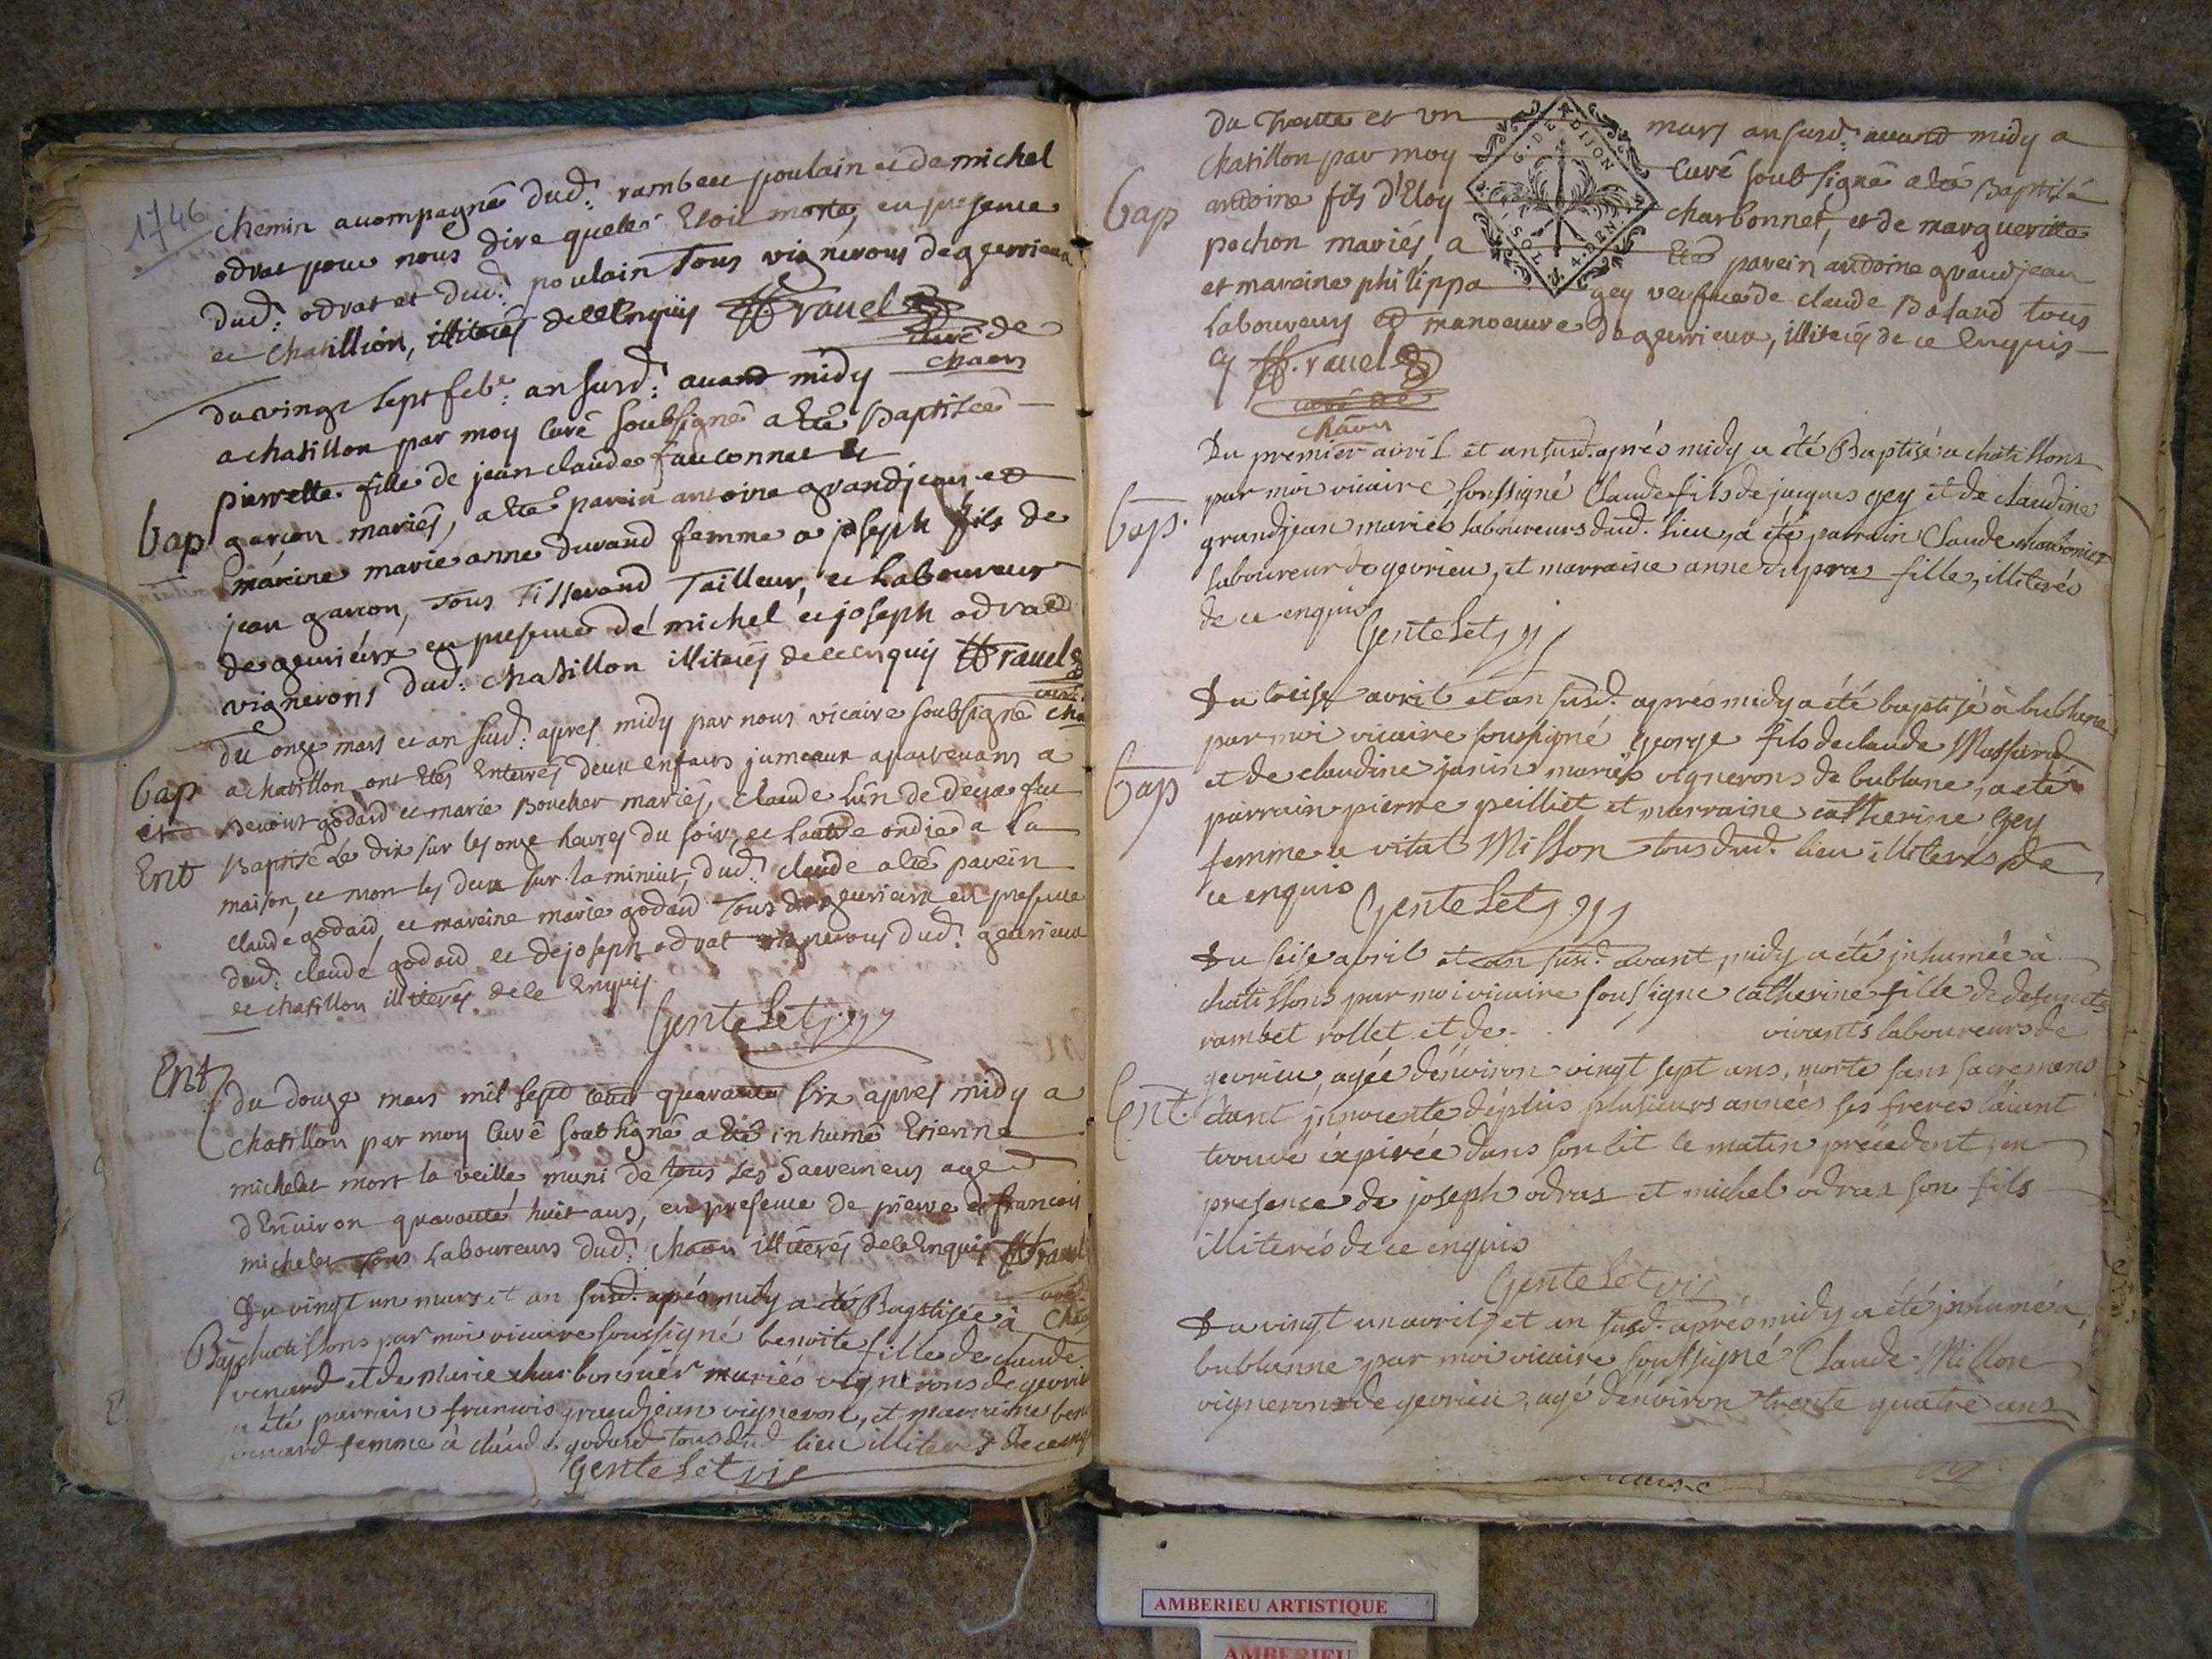 1746
chemin acompagné dud: rambert poulain et de michel
odrat pour nous dire quelle Etoit morte, en presence
dud: odrat et dud: poulain Tous vignerons de gevrieux
et chatillion, illiterés de ce Enquis ravel
curé de
chaon
du vingt sept feb: an susd: avant midy
a chatillon par moy Curé soubsigné a Eté Baptisée
pierrette fille de jean claude fauconnet et
Bap
garcon mariés, a Eté parein antoine grandjean et
mareine marie anne durand femme a joseph fils de
jean garcon, Tous Tisserand Tailleur, et Laboureur
de gevrieux en presence de michel et joseph odrat
vignerons dud: chatillon illiterés de ce Enquis ravel
curé
cha
Du onze mars et an susd: apres midy par nous vicaire soubsigné
Bap
a chatillon ont Etés Enterrés deux enfans jumeaux apartenans a
et
benoit godard et marie Boucher mariés, claude lun de deux fut
Ent
Baptisé Le dix sur les onze heures du soir, et Lautre ondié a La
maison, et mort les deux sur la minuit, dud: claude a Eté parein
claude godard et mareine marie godard Tous de gevrieux en presence
dud: claude godard et de joseph odrat vignerons dud: gevrieux
et chatillon illiterés de ce Enquis
Gentelet
Ent
du douze mars mil sept cent quarante six apres midy a
chatillon par moy Curé soubsigné a Eté inhumé Etienne
michelet mort la veille muni de tous ses Sacremens agé
dEnviron quarante huit ans, en presence de pierre et francois
michelet Tous Laboureurs dud: chaon illiterés de ce Enquis ravel
curé
cha
Du vingt un mars et an susd. aprés midy a eté Baptisée à
Bap
chatillons par moi vicaire soussigné benoite fille de claude
venard et de Marie charbonnier mariés vignerons de gevrieu
a été parrain francois grandjean vigneron, et marraine
venard femme à claude godard tous dud lieu illiterés de ce
Gentelet vic
Du Trente et un mars an susd: avant midy a
chatillon par moy Curé soubsigné a Eté Baptisé
Bap
antoine fils d'Eloy charbonnet, et de marguerite
pochon mariés, a Eté parein antoine grandjean
et mareine philippa gey veufve de claude Bolard tous
Laboureurs et manoeuvre de gevrieux, illiterés de ce Enquis
G. DE DIJON
4. DEN.
SOLS
ravel
curé de
chaon
Du premier avril et an susd. aprés midy a été Baptisé a chatillons
Bap.
par moi vicaire soussigné Claude fils de jacques gey et de claudine
grandjean mariés laboureurs dud. lieu, a été parrain Claude charbonier
laboureur de gevrieu, et marraine anne dupras fille, illiterés
de ce enquis
Gentelet
Du treise avril et an susd. aprés midy a été baptisé à bublane
par moi vicaire soussigné George fils de claude Massard
Bap
et de claudine janin mariés vignerons de bublane, a eté
parrain pierre peilliet et marraine catherine Gey
femme a vital Misson tous dud. lieu illiterés de
ce enquis
Gentelet
Du seise avril et an susd. avant midy a été inhumée à
chatillons par moi vicaire soussigné catherine fille de defuncts
rambet rollet et de vivants laboureurs de
gevrieu, agée dénviron vingt sept ans, morte sans sacremens
Ent.
étant jnnocente dépuis plusieurs années ses freres láiant
trouvé éxpirée dans son lit le matin précedent, en
presence de joseph odras et michel odras son fils
illiterés de ce enquis
Gentelet vic
Du vingt un avril et an susd. aprés midy a été jnhumé a
bublanne par moi vicaire soussigné Claude Millon
vigneron de gevrieu, agé dénviron trente quatre ans
AMBERIEU ARTISTIQUE
AMBERIEU